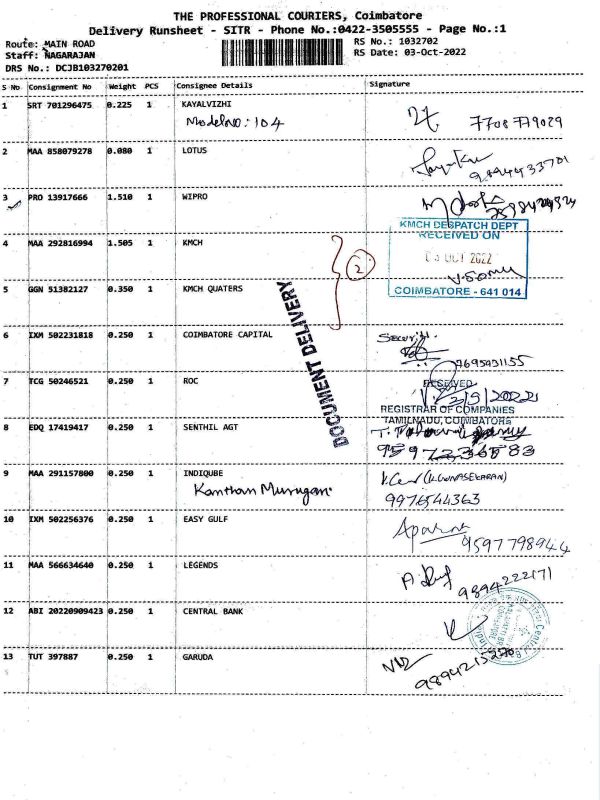 THE PROFESSIONAL COURIERS, Coimbatore
Delivery Runsheet - SITR - Phone No.:0422-3505555 - Page No.:1
Route: MAIN ROAD
RS No.: 1032702
Staff: NAGARAJAN
RS Date: 03-Oct-2022
DRS No.: DCJB103270201
S No Consignment No Weight PCS Consignee Details Signature
1 SRT 701296475 0.225 1 KAYALVIZHI
Model No: 104 7708779029
2 MAA 858079278 0.080 1 LOTUS
9894433701
3 PRO 13917666 1.510 1 WIPRO
KMCH DESPATCH DEPT
RECEIVED ON
4 MAA 292816994 1.505 1 KMCH
2
OCT 2022
COIMBATORE - 641 014
5 GGN 51382127 0.350 1 KMCH QUATERS
DOCUMENT DELIVERY
6 IXM 502231818 0.250 1 COIMBATORE CAPITAL
7695931155
7 TCG 50246521 0.250 1 ROC
RECEIVED
REGISTRAR OF COMPANIES
TAMILNADU, COIMBATORE
8 EDQ 17419417 0.250 1 SENTHIL AGT
9 MAA 291157800 0.250 1 INDIQUBE
Kanthan Murugan
(K.GUNASEKARAN)
9976544363
10 IXM 502256376 0.250 1 EASY GULF
9597798944
11 MAA 566634640 0.250 1 LEGENDS
9894222171
12 ABI 20220909423 0.250 1 CENTRAL BANK
13 TUT 397887 0.250 1 GARUDA
9894215270